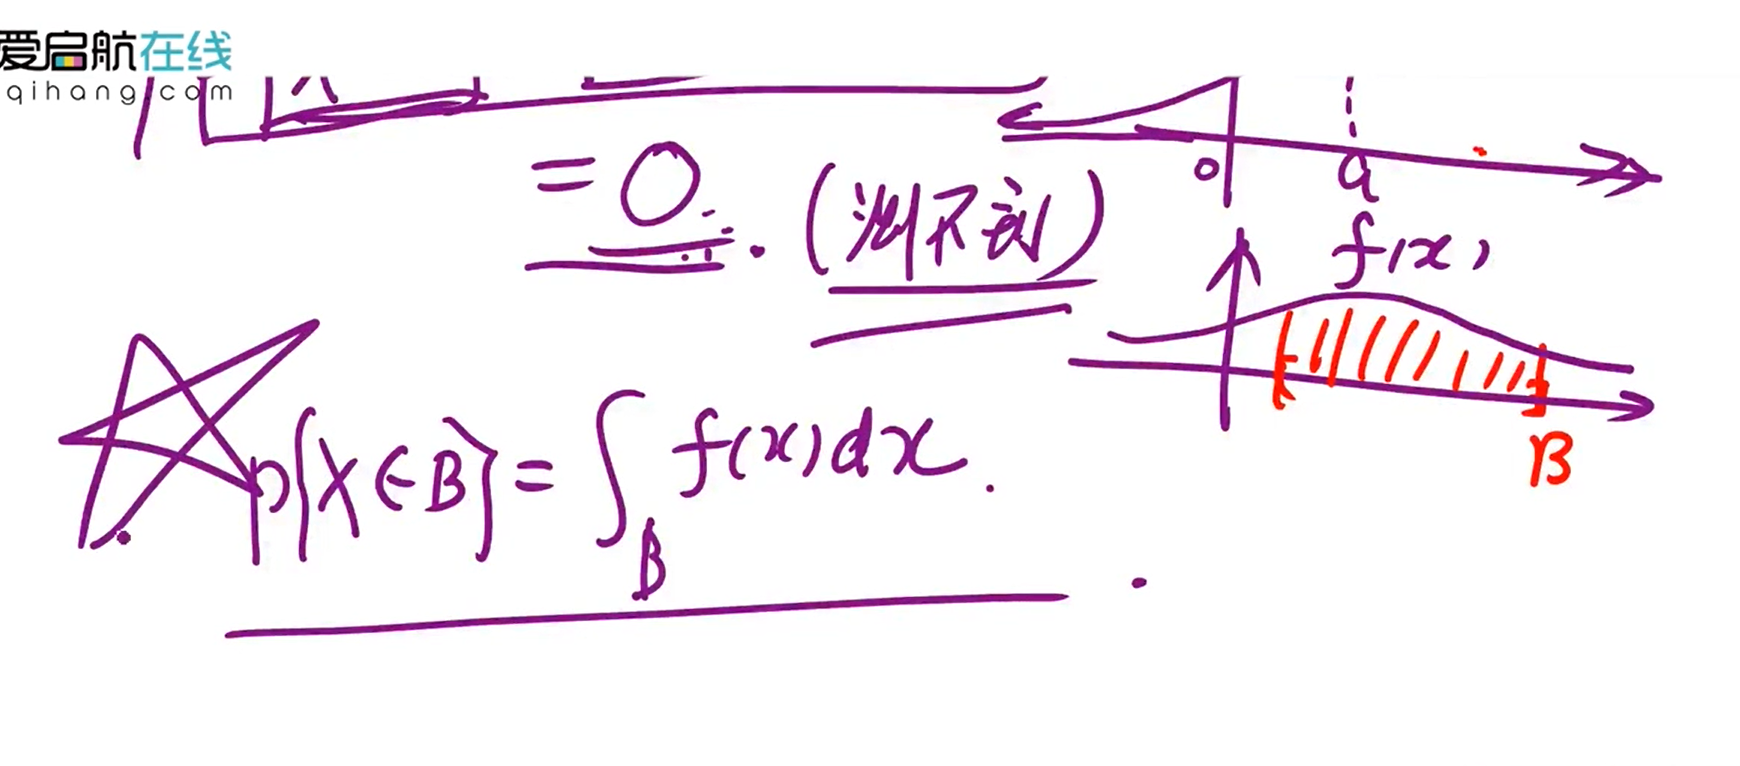 爱启航在线
qihang.com
= 0. (测不到)
0 a
f(x)
P{X∈B} = ∫_B f(x)dx.
B